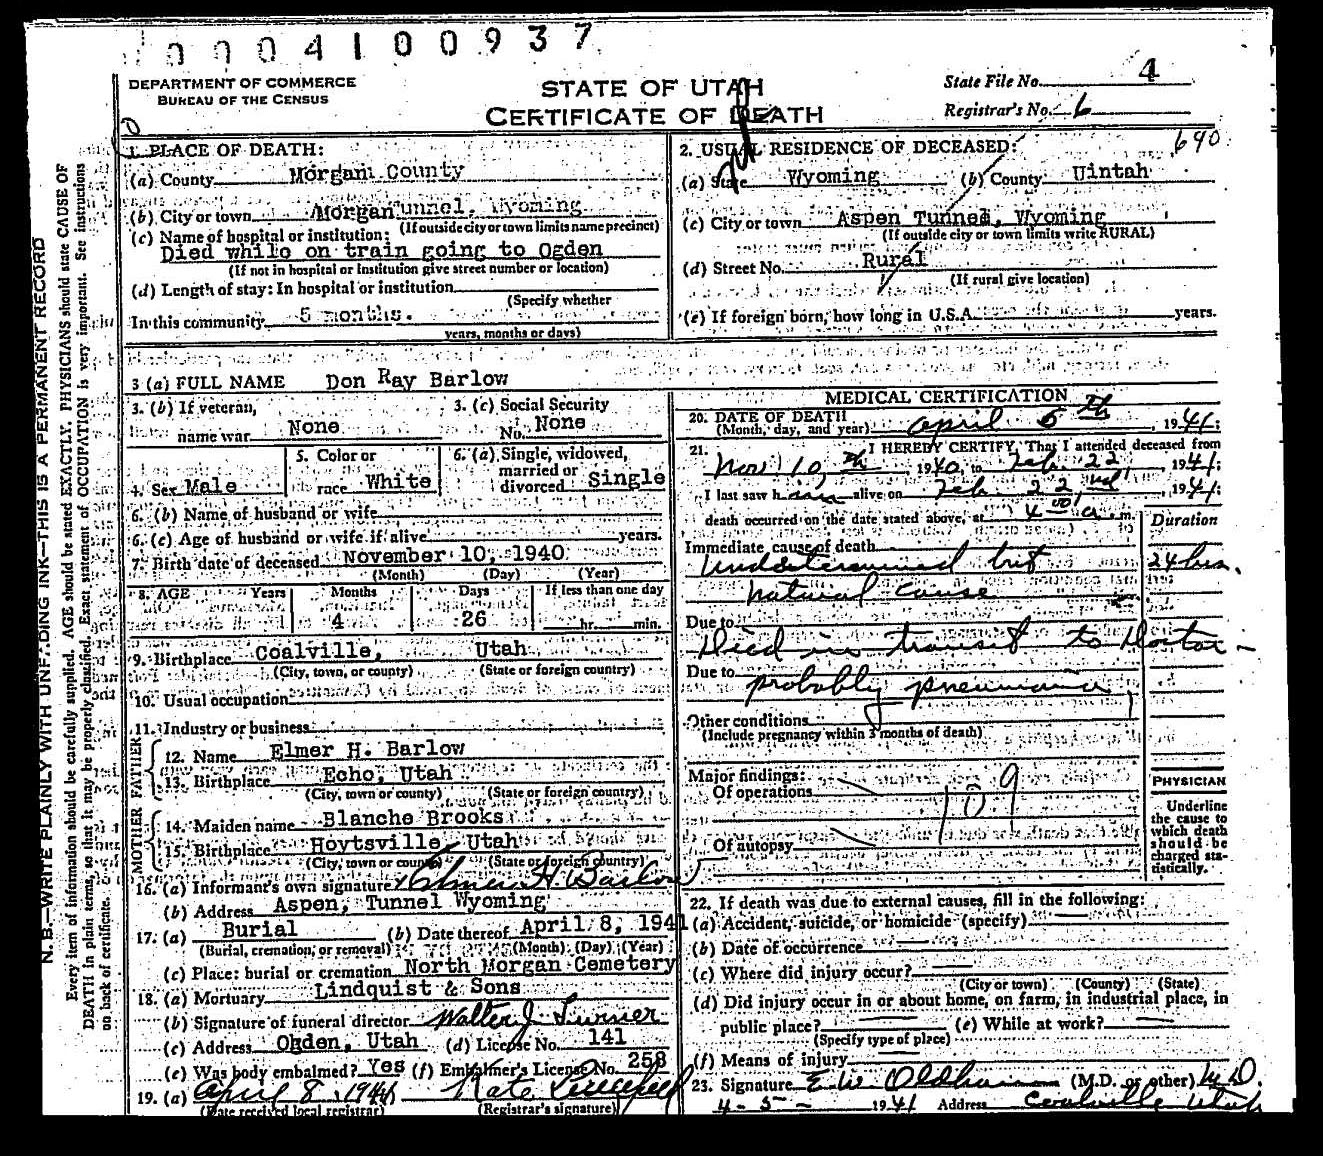 0004100937
DEPARTMENT OF COMMERCE
BUREAU OF THE CENSUS
STATE OF UTAH
CERTIFICATE OF DEATH
State File No. 4
Registrar's No. 6
690
1. PLACE OF DEATH:
(a) County Morgan County
(b) City or town Morgan unnel, Wyoming
(If outside city or town limits name precinct)
(c) Name of hospital or institution:
Died while on train going to Ogden
(If not in hospital or institution give street number or location)
(d) Length of stay: In hospital or institution
(Specify whether
In this community 5 months.
years, months or days)
2. USUAL RESIDENCE OF DECEASED:
(a) State Wyoming (b) County Uintah
(c) City or town Aspen Tunnel, Wyoming
(If outside city or town limits write RURAL)
(d) Street No. Rural
(If rural give location)
(e) If foreign born, how long in U.S.A. years.
3 (a) FULL NAME Don Ray Barlow
3. (b) If veteran, name war None
3. (c) Social Security No. None
4. Sex Male
5. Color or race White
6. (a) Single, widowed, married or divorced Single
6. (b) Name of husband or wife
6. (c) Age of husband or wife if alive years.
7. Birth date of deceased November 10, 1940
(Month) (Day) (Year)
8. AGE Years Months Days If less than one day
4 26 hr. min.
9. Birthplace Coalville, Utah
(City, town, or county) (State or foreign country)
10. Usual occupation
11. Industry or business
FATHER
12. Name Elmer H. Barlow
13. Birthplace Echo, Utah
(City, town or county) (State or foreign country)
MOTHER
14. Maiden name Blanche Brooks
15. Birthplace Hoytsville, Utah
(City, town or county) (State or foreign country)
16. (a) Informant's own signature x Elmer H. Barlow
(b) Address Aspen, Tunnel Wyoming
17. (a) Burial (b) Date thereof April 8, 1941
(Burial, cremation, or removal) (Month) (Day) (Year)
(c) Place: burial or cremation North Morgan Cemetery
18. (a) Mortuary Lindquist & Sons
(b) Signature of funeral director Walter J. Turner
(c) Address Ogden, Utah (d) License No. 141
(e) Was body embalmed? Yes (f) Embalmer's License No. 258
19. (a) April 8, 1941
(Date received local registrar) (Registrar's signature)
MEDICAL CERTIFICATION
20. DATE OF DEATH
(Month, day, and year) April 5th, 1941;
21. I HEREBY CERTIFY, That I attended deceased from
Nov 10th 1940, to Feb. 22, 1941;
I last saw him alive on Feb. 22nd, 1941;
death occurred on the date stated above, at 4 00 a. m.
Duration
Immediate cause of death
Undetermined but 24 hrs.
natural cause
Due to
Died in transit to Doctor -
Due to
probably pneumonia
Other conditions
(Include pregnancy within 3 months of death)
Major findings:
Of operations
109
Of autopsy
PHYSICIAN
Underline
the cause to
which death
should be
charged sta-
tistically.
22. If death was due to external causes, fill in the following:
(a) Accident, suicide, or homicide (specify)
(b) Date of occurrence
(c) Where did injury occur?
(City or town) (County) (State)
(d) Did injury occur in or about home, on farm, in industrial place, in
public place? (e) While at work?
(Specify type of place)
(f) Means of injury
23. Signature Oldham (M.D. or other) M.D.
4-5- 1941 Address Coalville Utah
N. B.—WRITE PLAINLY WITH UNFADING INK—THIS IS A PERMANENT RECORD
Every item of information should be carefully supplied. AGE should be stated EXACTLY. PHYSICIANS should state CAUSE OF
DEATH in plain terms, so that it may be properly classified. Exact statement of OCCUPATION is very important. See instructions
on back of certificate.